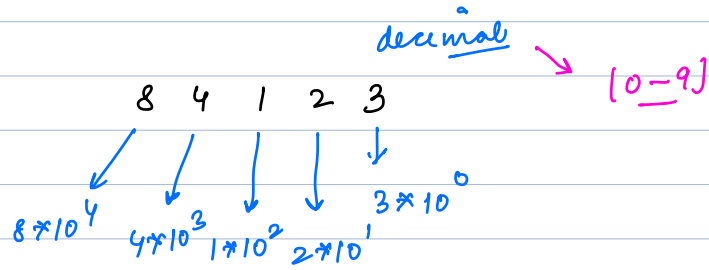 decimal
[0-9]
8 4 1 2 3
8*10^4 4*10^3 1*10^2 2*10^1 3*10^0